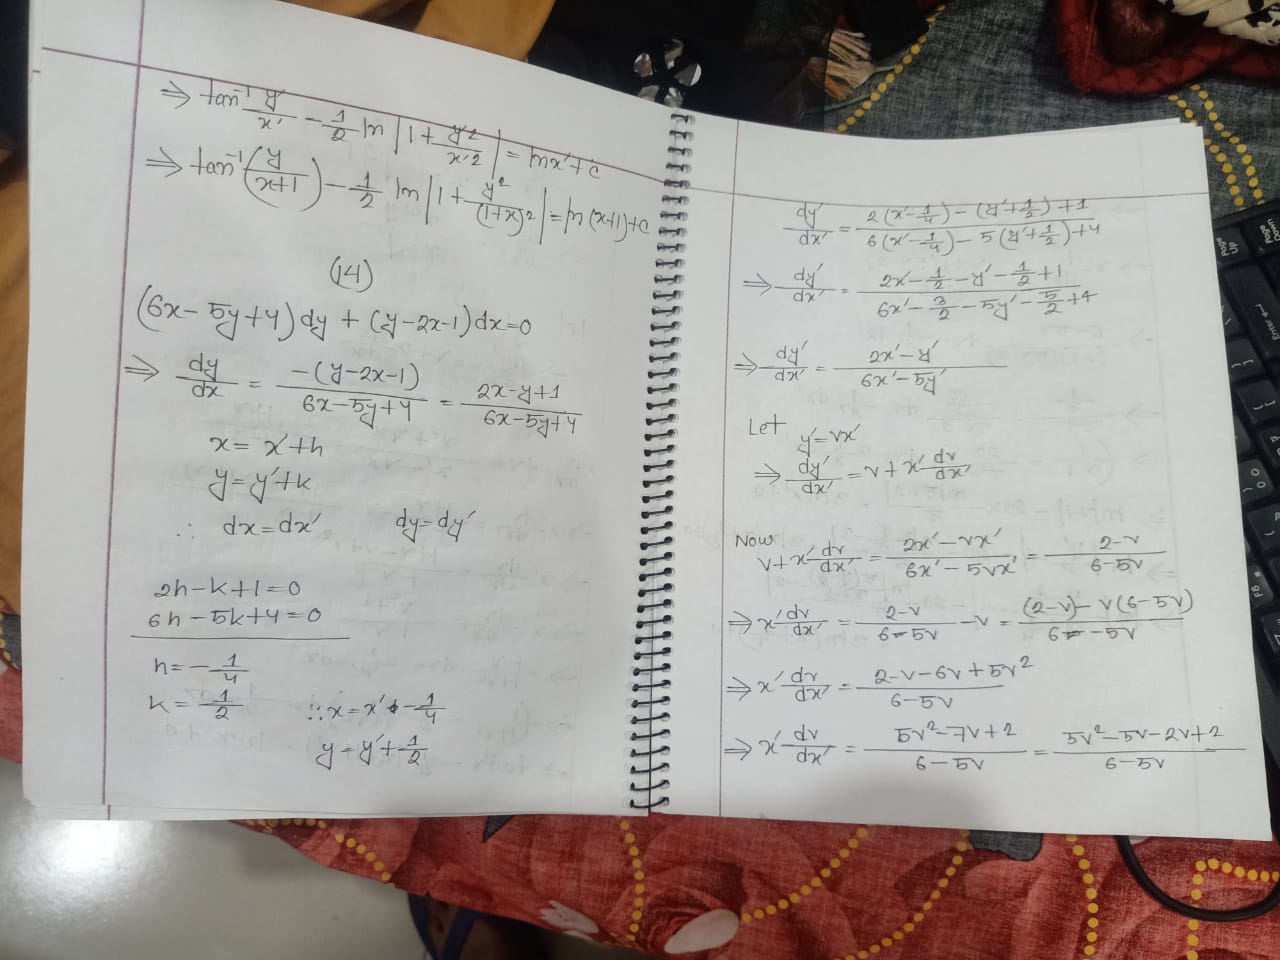 ⇒ tan⁻¹ y'/x' - 1/2 ln |1 + y'²/x'²| = lnx' + c
⇒ tan⁻¹(y/(x+1)) - 1/2 ln |1 + y²/(1+x)²| = ln(x+1)+c
(14)
(6x-5y+4)dy + (y-2x-1)dx=0
⇒ dy/dx = -(y-2x-1)/(6x-5y+4) = (2x-y+1)/(6x-5y+4)
x = x'+h
y = y'+k
∴ dx = dx' dy = dy'
2h-k+1=0
6h-5k+4=0
h = -1/4
k = 1/2 ∴ x = x' - 1/4
y = y' + 1/2
dy'/dx' = (2(x'-1/4) - (y'+1/2) + 1)/(6(x'-1/4) - 5(y'+1/2) + 4)
⇒ dy'/dx' = (2x' - 1/2 - y' - 1/2 + 1)/(6x' - 3/2 - 5y' - 5/2 + 4)
⇒ dy'/dx' = (2x'-y')/(6x'-5y')
Let
y' = vx'
⇒ dy'/dx' = v + x' dv/dx'
Now
v + x' dv/dx' = (2x'-vx')/(6x'-5vx') = (2-v)/(6-5v)
⇒ x' dv/dx' = (2-v)/(6-5v) - v = ((2-v) - v(6-5v))/(6-5v)
⇒ x' dv/dx' = (2-v-6v+5v²)/(6-5v)
⇒ x' dv/dx' = (5v²-7v+2)/(6-5v) = (5v²-5v-2v+2)/(6-5v)
Page UP
Page Down
Enter
F8